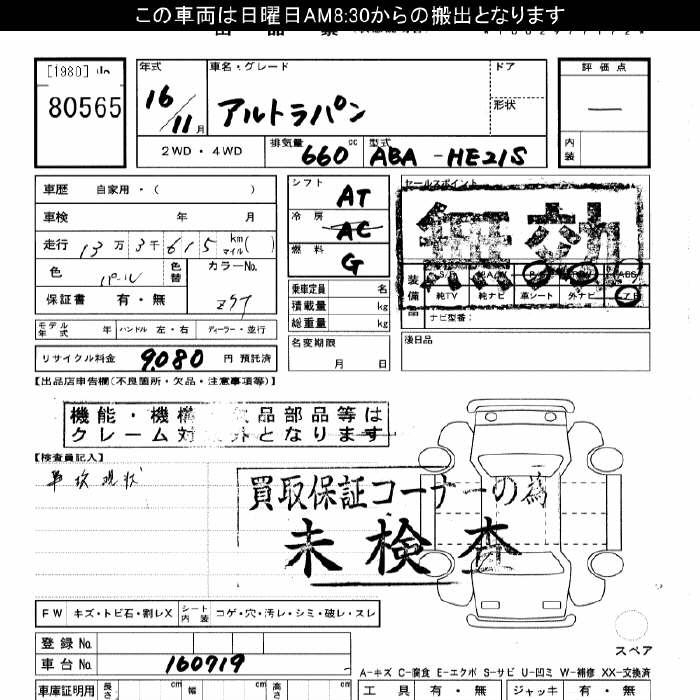 この車両は日曜日AM8:30からの搬出となります
[1980]
80565
年式
16/11月
車名・グレード
アルトラパン
ドア
形状
評価点
内装
2WD・4WD
排気量 660 cc
型式 ABA-HE21S
車歴 自家用・( )
車検 年 月
走行 13万3千615 km マイル( )
色 パール 色替 カラーNo. ZCT
保証書 有・無
モデル年式 年 ハンドル 左・右 ディーラー・並行
リサイクル料金 9,080 円 預託済
シフト AT
冷房 AC
燃料 G
乗車定員 名
積載量 kg
総重量 kg
名変期限 月 日
セールスポイント
無効
装備品
純TV 純ナビ 革シート 外ナビ
ナビ型番:
後日品
【出品店申告欄(不良箇所・欠品・注意事項等)】
機能・機構 欠品部品等は
クレーム対 外となります
【検査員記入】
現状
買取保証コーナーの為
未検査
FW キズ・トビ石・割レX シート内装 コゲ・穴・汚レ・シミ・破レ・スレ
登録No.
車台No. 160719
車庫証明用 長さ cm 幅 cm 高さ cm
スペア
A-キズ C-腐食 E-エクボ S-サビ U-凹ミ W-補修 XX-交換済
工具 有・無 ジャッキ 有・無